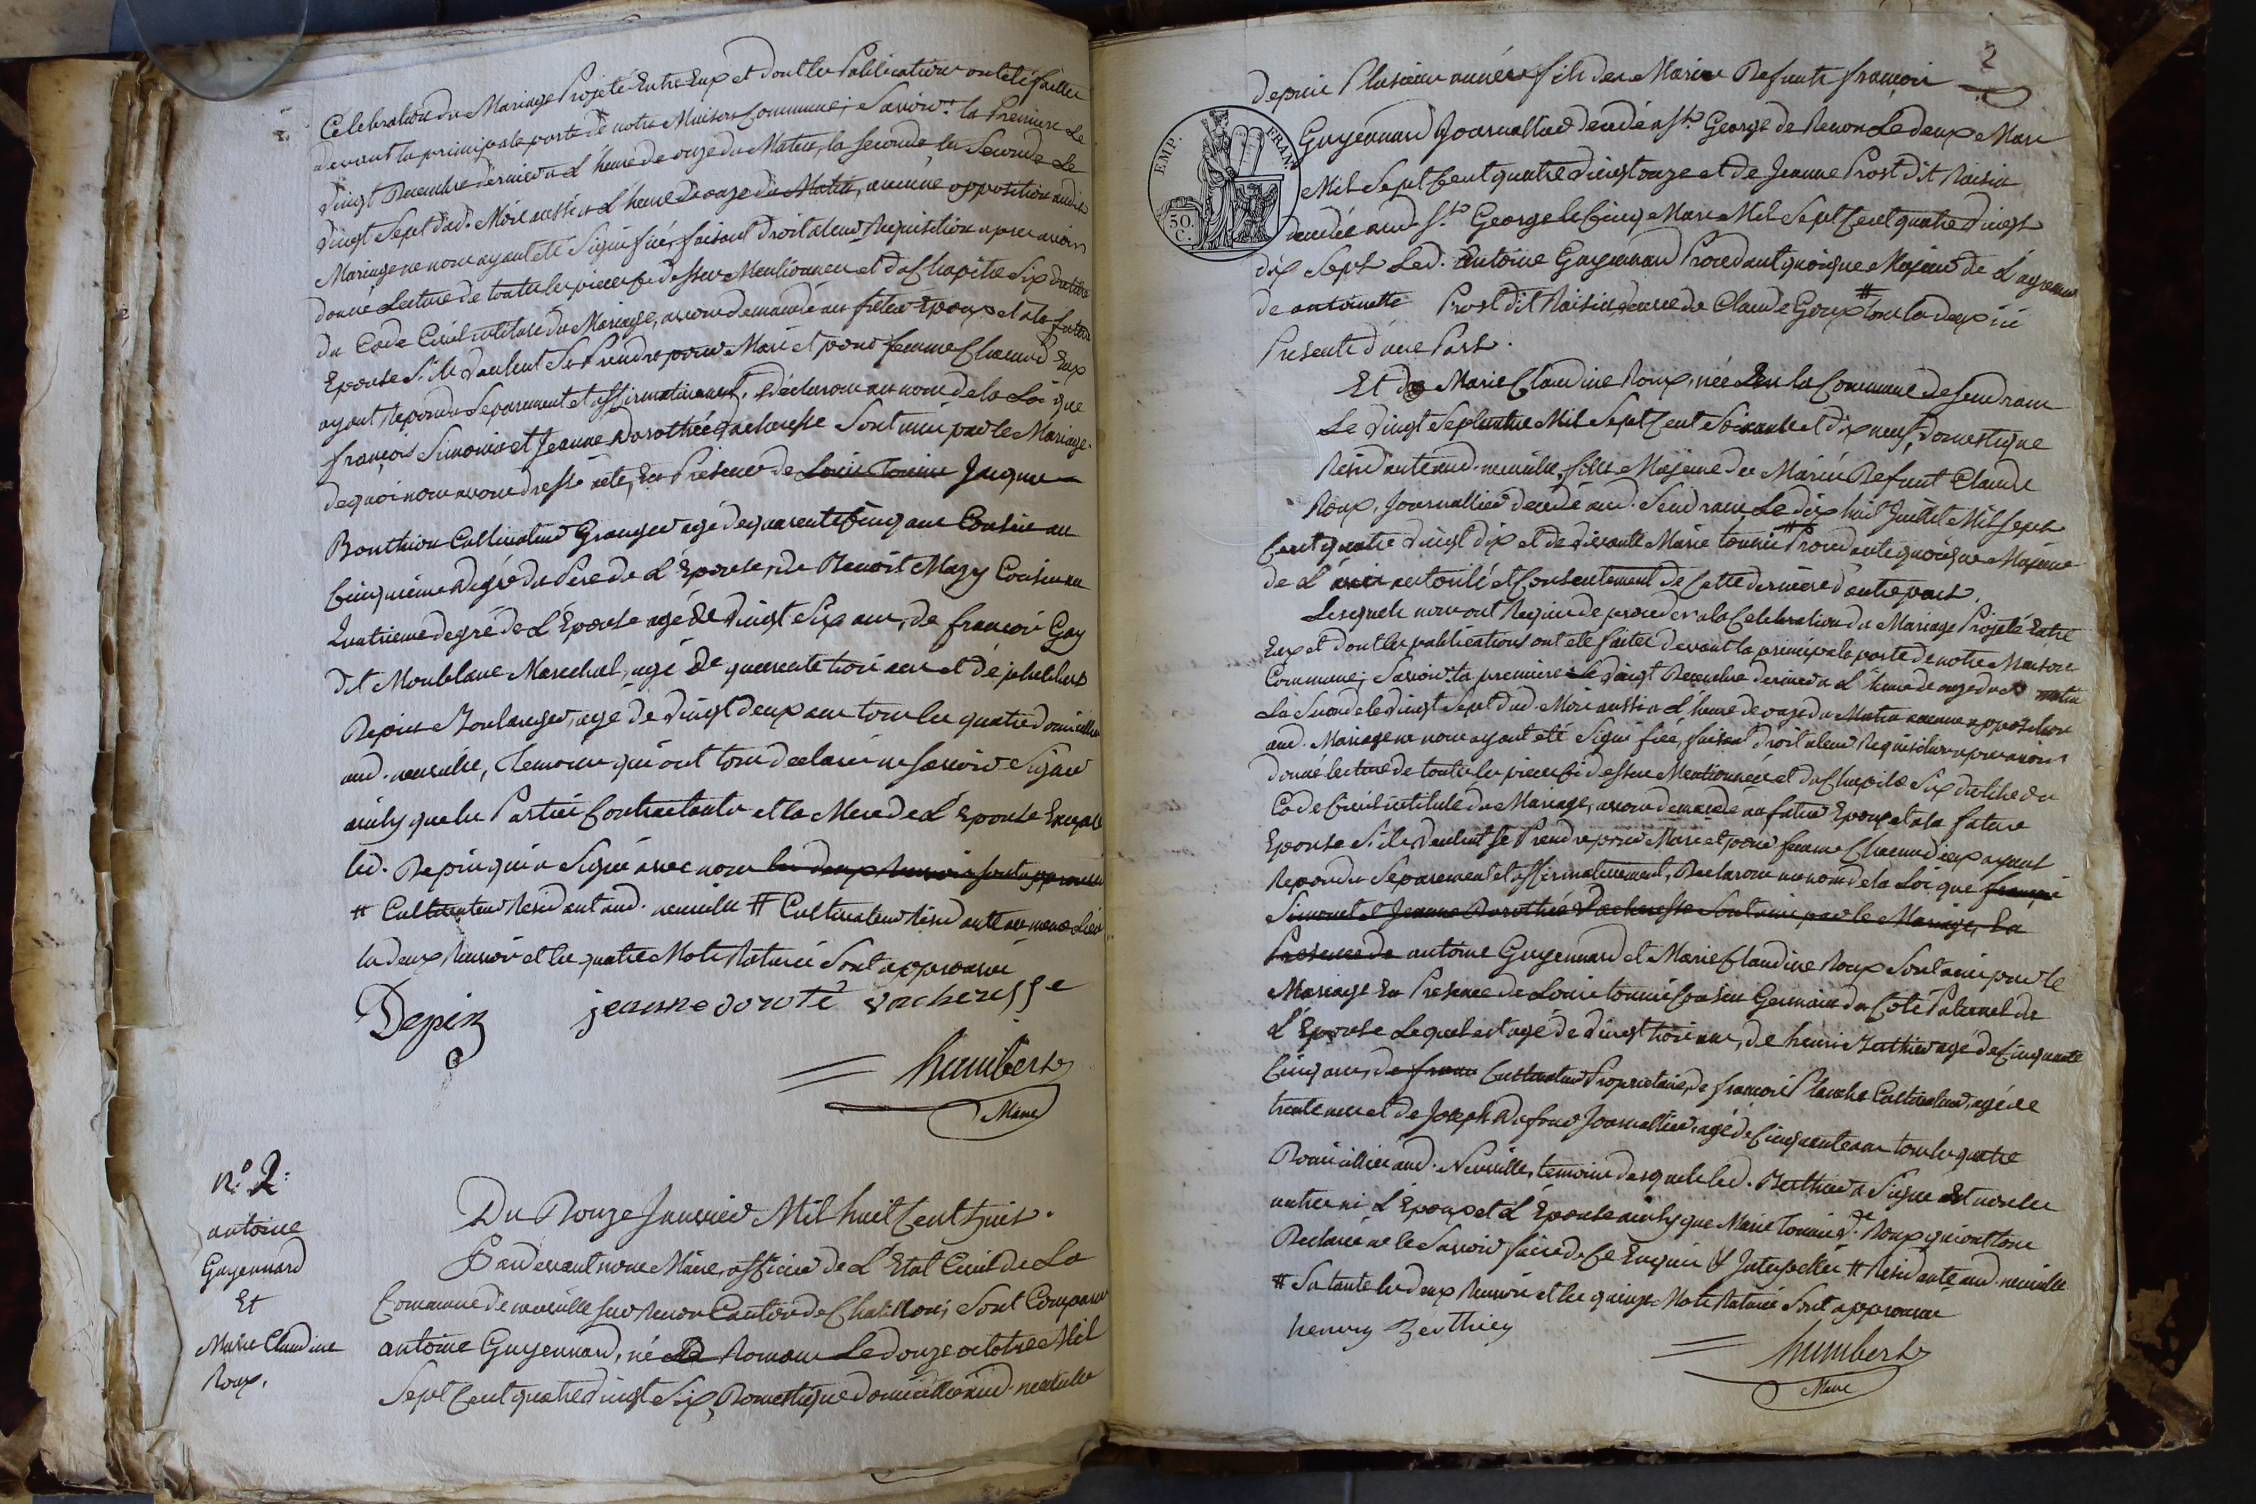 Célébration du Mariage Projeté Entre Eux et dont les Publications ont été faittes
devant la principale porte de notre Maison Commune; Savoir: la Premiere Le
Vingt Decembre dernier a L'heure de onze du Matin, la seconde La Seconde Le
Vingt Sept dud. Mois aussi a L'heure de onze du Matin, aucune opposition audit
Mariage ne nous ayant été Signifiée, faisant droit a leur Requisition apres avoir
donné Lecture de toutes les pieces ci dessus Mentionnees et du Chapitre Six du titre
du Code Civil intitulé du Mariage, avons demandé au futur Epoux et a la future
Epouse S'ils Veulent Se Prendre pour Mari et pour femme Chacun d'Eux
ayant Repondu Séparement et affirmativement, déclarons au nom de la Loi que
françois Simonet et Jeanne Dorothée Vacheresse Sont unis par le Mariage.
de quoi nous avons dressé acte, En Présence de Louis Tonnier Jacques
Bouthion Cultivateur Granger agé de quarente Cinq ans Cousin au
Cinquieme degré du Pere de L'Epouse, de Benoit Mazy Cousin au
Quatrieme degré de L'Epouse agé de Vingt Six ans, de françois Guy
dit Montblanc Marechal, agé de quarente trois ans et de
Depin Boulanger, agé de Vingt deux ans tous les quatre domiciliés
aud. neuville, Temoins qui ont tous declaré ne Savoir Signer
ainsy que les Parties Contractantes et la Mere de L'Epouse Excepté
led. Depin qui a Signé avec nous les deux Renvois sont approuvés
# Cultivateur Residant aud. neuville # Cultivateur Residante au meme Lieu
les deux Renvois et les quatre Mots Raturés Sont approuvés
Depin jeanne doroté vacheresse
humbert
Maire
N.º 2:
antoine
Guyennard
Et
Marie Claudine
Roux.
Du Douze Janvier Mil huit Cent Huit.
Pardevant nous Maire, officier de L'Etat Civil de La
Commune de neuville sur Renon Canton de Chatillon, Sont Comparus
antoine Guyennard, né à Romans Le douze octobre Mil
Sept Cent quatre Vingt Six, Domestique domicilié aud. neuville
2
depuis Plusieurs années fils des Mariés Defunts françois
EMP. FRAN.
50 C.
Guyennard Journallier décédé a St. George de Renon Le deux Mars
Mil Sept Cent quatre Vingt onze et de Jeanne Prost dit Raisin
décédée aud. St. George le Cinq Mars Mil Sept Cent quatre Vingt
dix Sept Led. Antoine Guyennard Procedant quoique Majeur de L'agrement
de antoinette Prost dit Raisin, veuve de Claude Goux # tous les deux ici
Presents d'une Part.
Et de Marie Claudine Roux, née En la Commune de Sendrans
Le Vingt Septembre Mil Sept Cent Soixante et dix neuf, Domestique
Residante aud. neuville, fille Majeure des Mariés Defunt Claude
Roux, Journallier decédé aud. Sendrans Le dix huit Juillet Mil Sept
Cent quatre Vingt dix et de Vivante Marie Tonnier # Procedante quoique Majeure
de L' autorité et Consentement de Cette derniere d'autre part.
Lesquels nous ont Requis de proceder a la Celebration du Mariage Projeté Entre
Eux et dont les publications ont été faites devant la principale porte de notre Maison
Commune; Savoir: la premiere Le Vingt Decembre dernier a L'heure de onze du matin
La Seconde le Vingt Sept dud. Mois aussi a L'heure de onze du Matin aucune opposition
aud. Mariage ne nous ayant été Signifiée, faisant droit a leur Requisition apres avoir
donné lecture de toutes les pieces ci dessus Mentionnées et du Chapitre Six du titre du
Code Civil intitulé du Mariage, avons demandé au futur Epoux et a la future
Epouse S'ils Veulent Se Prendre pour Mari et pour femme Chacun d'eux ayant
Repondu Séparement et affirmativement, Declarons au nom de la Loi que françois
Simonet et Jeanne Dorothée Vacheresse Sont unis par le Mariage, En
Présence de antoine Guyennard et Marie Claudine Roux Sont unis par le
Mariage En Presence de Louis Tonnier Cousin Germain du Coté Paternel de
L'Epouse Lequel est agé de Vingt trois ans, de henri Berthier agé de Cinquante
Cinq ans, de franc Cultivateur Proprietaire, de françois Planche Cultivateur, agé de
trente ans et de Joseph Dufour Journallier, agé de Cinquante ans tous les quatre
Domiciliés aud. Neuville, temoins desquels led. Berthier a Signé Et non les
autres ni L'Epoux et L'Epouse ainsy que Marie Tonnier Ve. Roux qui ont tous
Declaré ne le Savoir faire de Ce Enquis & Interpellés # Residante aud. neuville
# Sa tante les deux Renvois et les quinze Mots Raturés Sont approuvés
henry Berthier
humbert
Maire